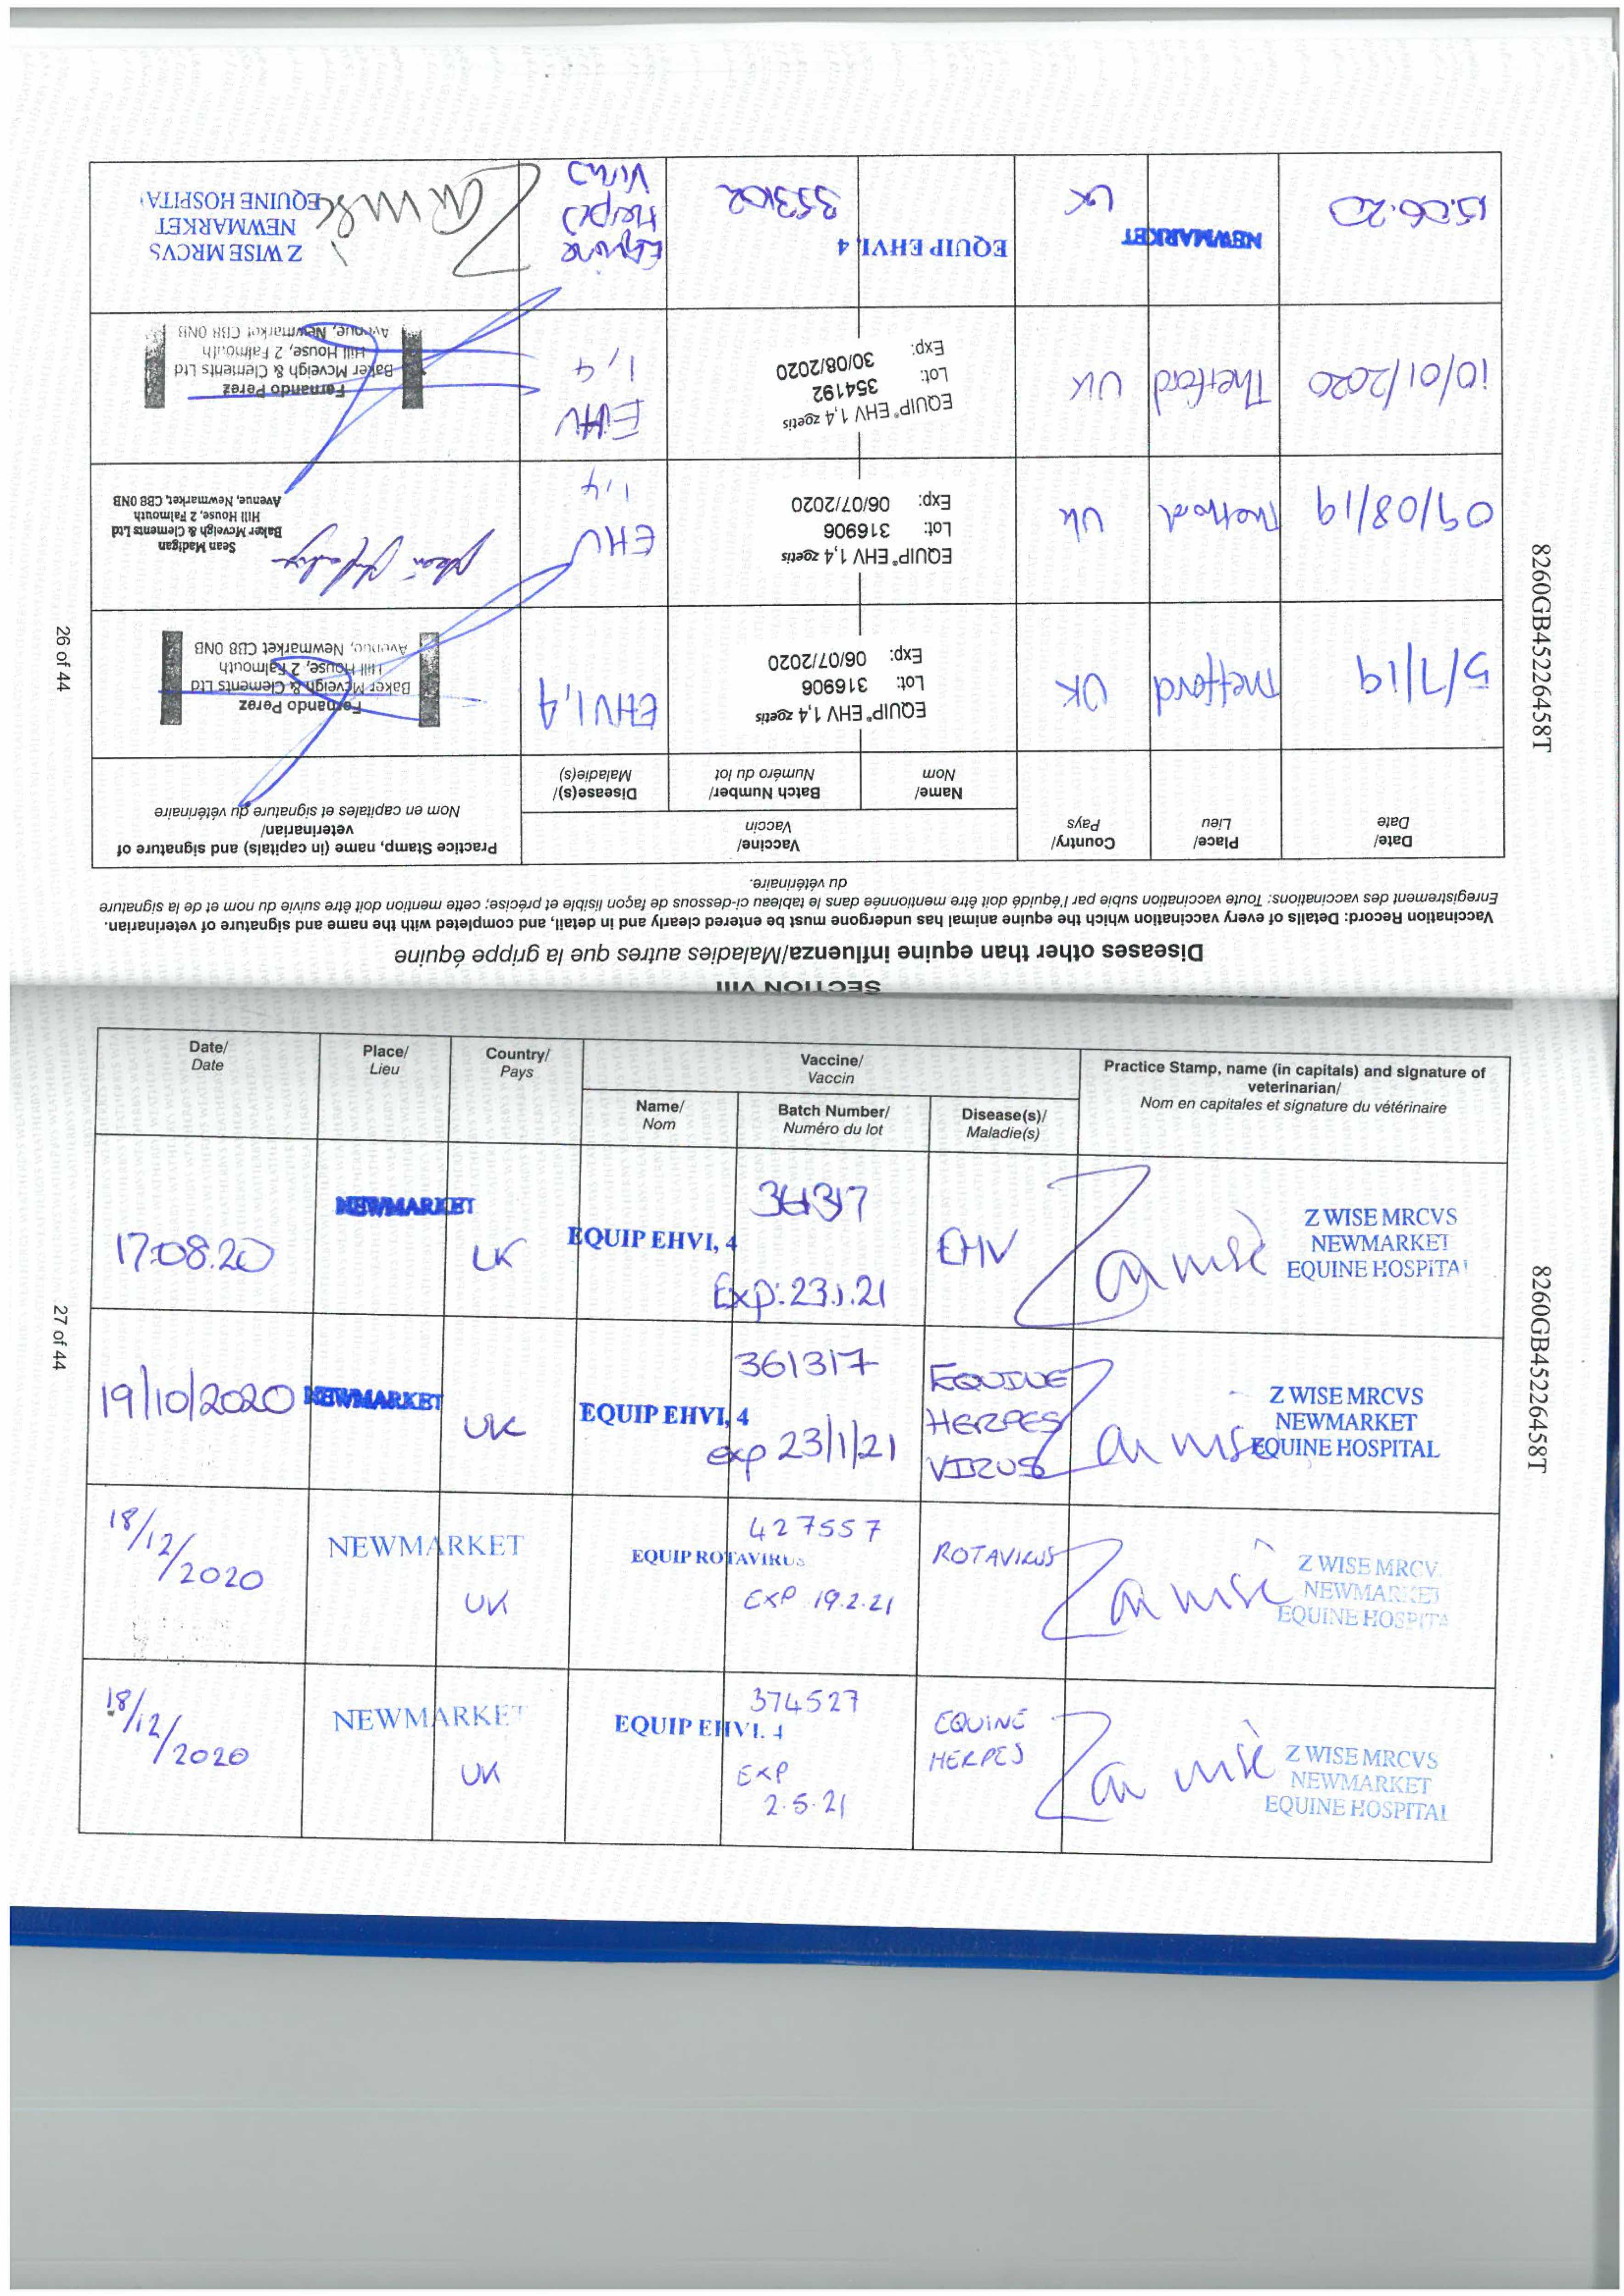 SECTION VIII
Diseases other than equine influenza/Maladies autres que la grippe équine
Vaccination Record: Details of every vaccination which the equine animal has undergone must be entered clearly and in detail, and completed with the name and signature of veterinarian.
Enregistrement des vaccinations: Toute vaccination subie par l'équidé doit être mentionnée dans le tableau ci-dessous de façon lisible et précise; cette mention doit être suivie du nom et de la signature
du vétérinaire.
Date/
Date
Place/
Lieu
Country/
Pays
Vaccine/
Vaccin
Practice Stamp, name (in capitals) and signature of
veterinarian/
Nom en capitales et signature du vétérinaire
Name/
Nom
Batch Number/
Numéro du lot
Disease(s)/
Maladie(s)
5/7/19
Thetford
UK
EQUIP® EHV 1,4 zoetis
Lot: 316906
Exp: 06/07/2020
EHV1,4
Fernando Perez
Baker Mcveigh & Clements Ltd
Hill House, 2 Falmouth
Avenue, Newmarket CB8 0NB
09/08/19
Thetford
UK
EQUIP® EHV 1,4 zoetis
Lot: 316906
Exp: 06/07/2020
EHV
1,4
Sean Madigan
Baker Mcveigh & Clements Ltd
Hill House, 2 Falmouth
Avenue, Newmarket, CB8 0NB
10/01/2020
Thetford
UK
EQUIP® EHV 1,4 zoetis
Lot: 354192
Exp: 30/08/2020
EHV
1,4
Fernando Perez
Baker Mcveigh & Clements Ltd
Hill House, 2 Falmouth
Avenue, Newmarket CB8 0NB
15.06.20
NEWMARKET
UK
EQUIP EHVI, 4
353102
Equine
Herpes
Virus
Z WISE MRCVS
NEWMARKET
EQUINE HOSPITA
26 of 44
8260GB45226458T
Date/
Date
Place/
Lieu
Country/
Pays
Vaccine/
Vaccin
Practice Stamp, name (in capitals) and signature of
veterinarian/
Nom en capitales et signature du vétérinaire
Name/
Nom
Batch Number/
Numéro du lot
Disease(s)/
Maladie(s)
17.08.20
NEWMARKET
UK
EQUIP EHVI, 4
Exp: 23.1.21
EHV
Za Wise
Z WISE MRCVS
NEWMARKET
EQUINE HOSPITA
19/10/2020
NEWMARKET
UK
EQUIP EHVI, 4
361317
exp 23/1/21
EQUINE
HERPES
VIRUS
Za Wise
Z WISE MRCVS
NEWMARKET
EQUINE HOSPITAL
18/12/2020
NEWMARKET
UK
EQUIP ROTAVIRUS
427557
EXP 19.2.21
ROTAVIRUS
Za Wise
Z WISE MRCV
NEWMARKET
EQUINE HOSPITA
18/12/2020
NEWMARKET
UK
EQUIP EHVI. 4
374527
EXP
2.5.21
EQUINE
HERPES
Za Wise
Z WISE MRCVS
NEWMARKET
EQUINE HOSPITAL
27 of 44
8260GB45226458T